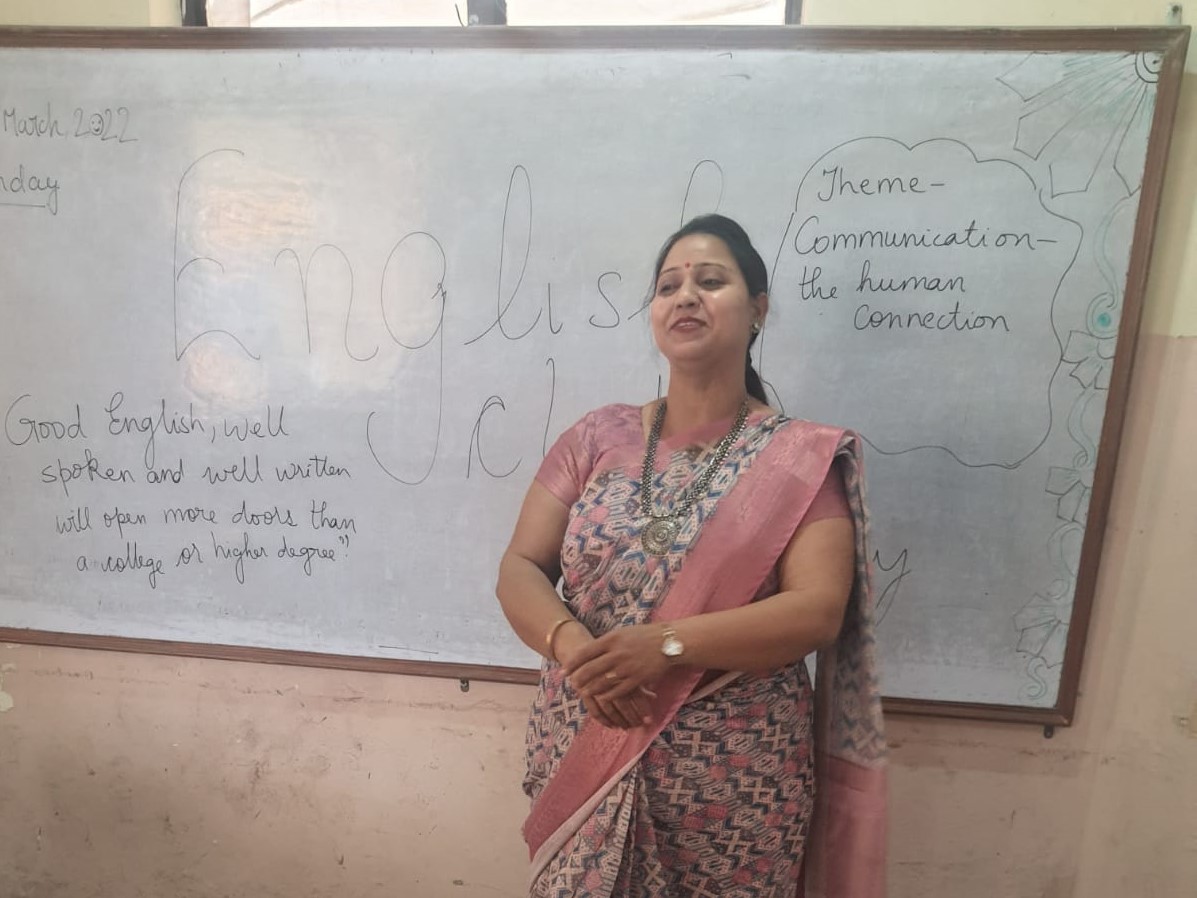 March, 2022
nday
English
cl
Theme-
Communication-
the human
connection
Good English, well
spoken and well written
will open more doors than
a college or higher degree"
y